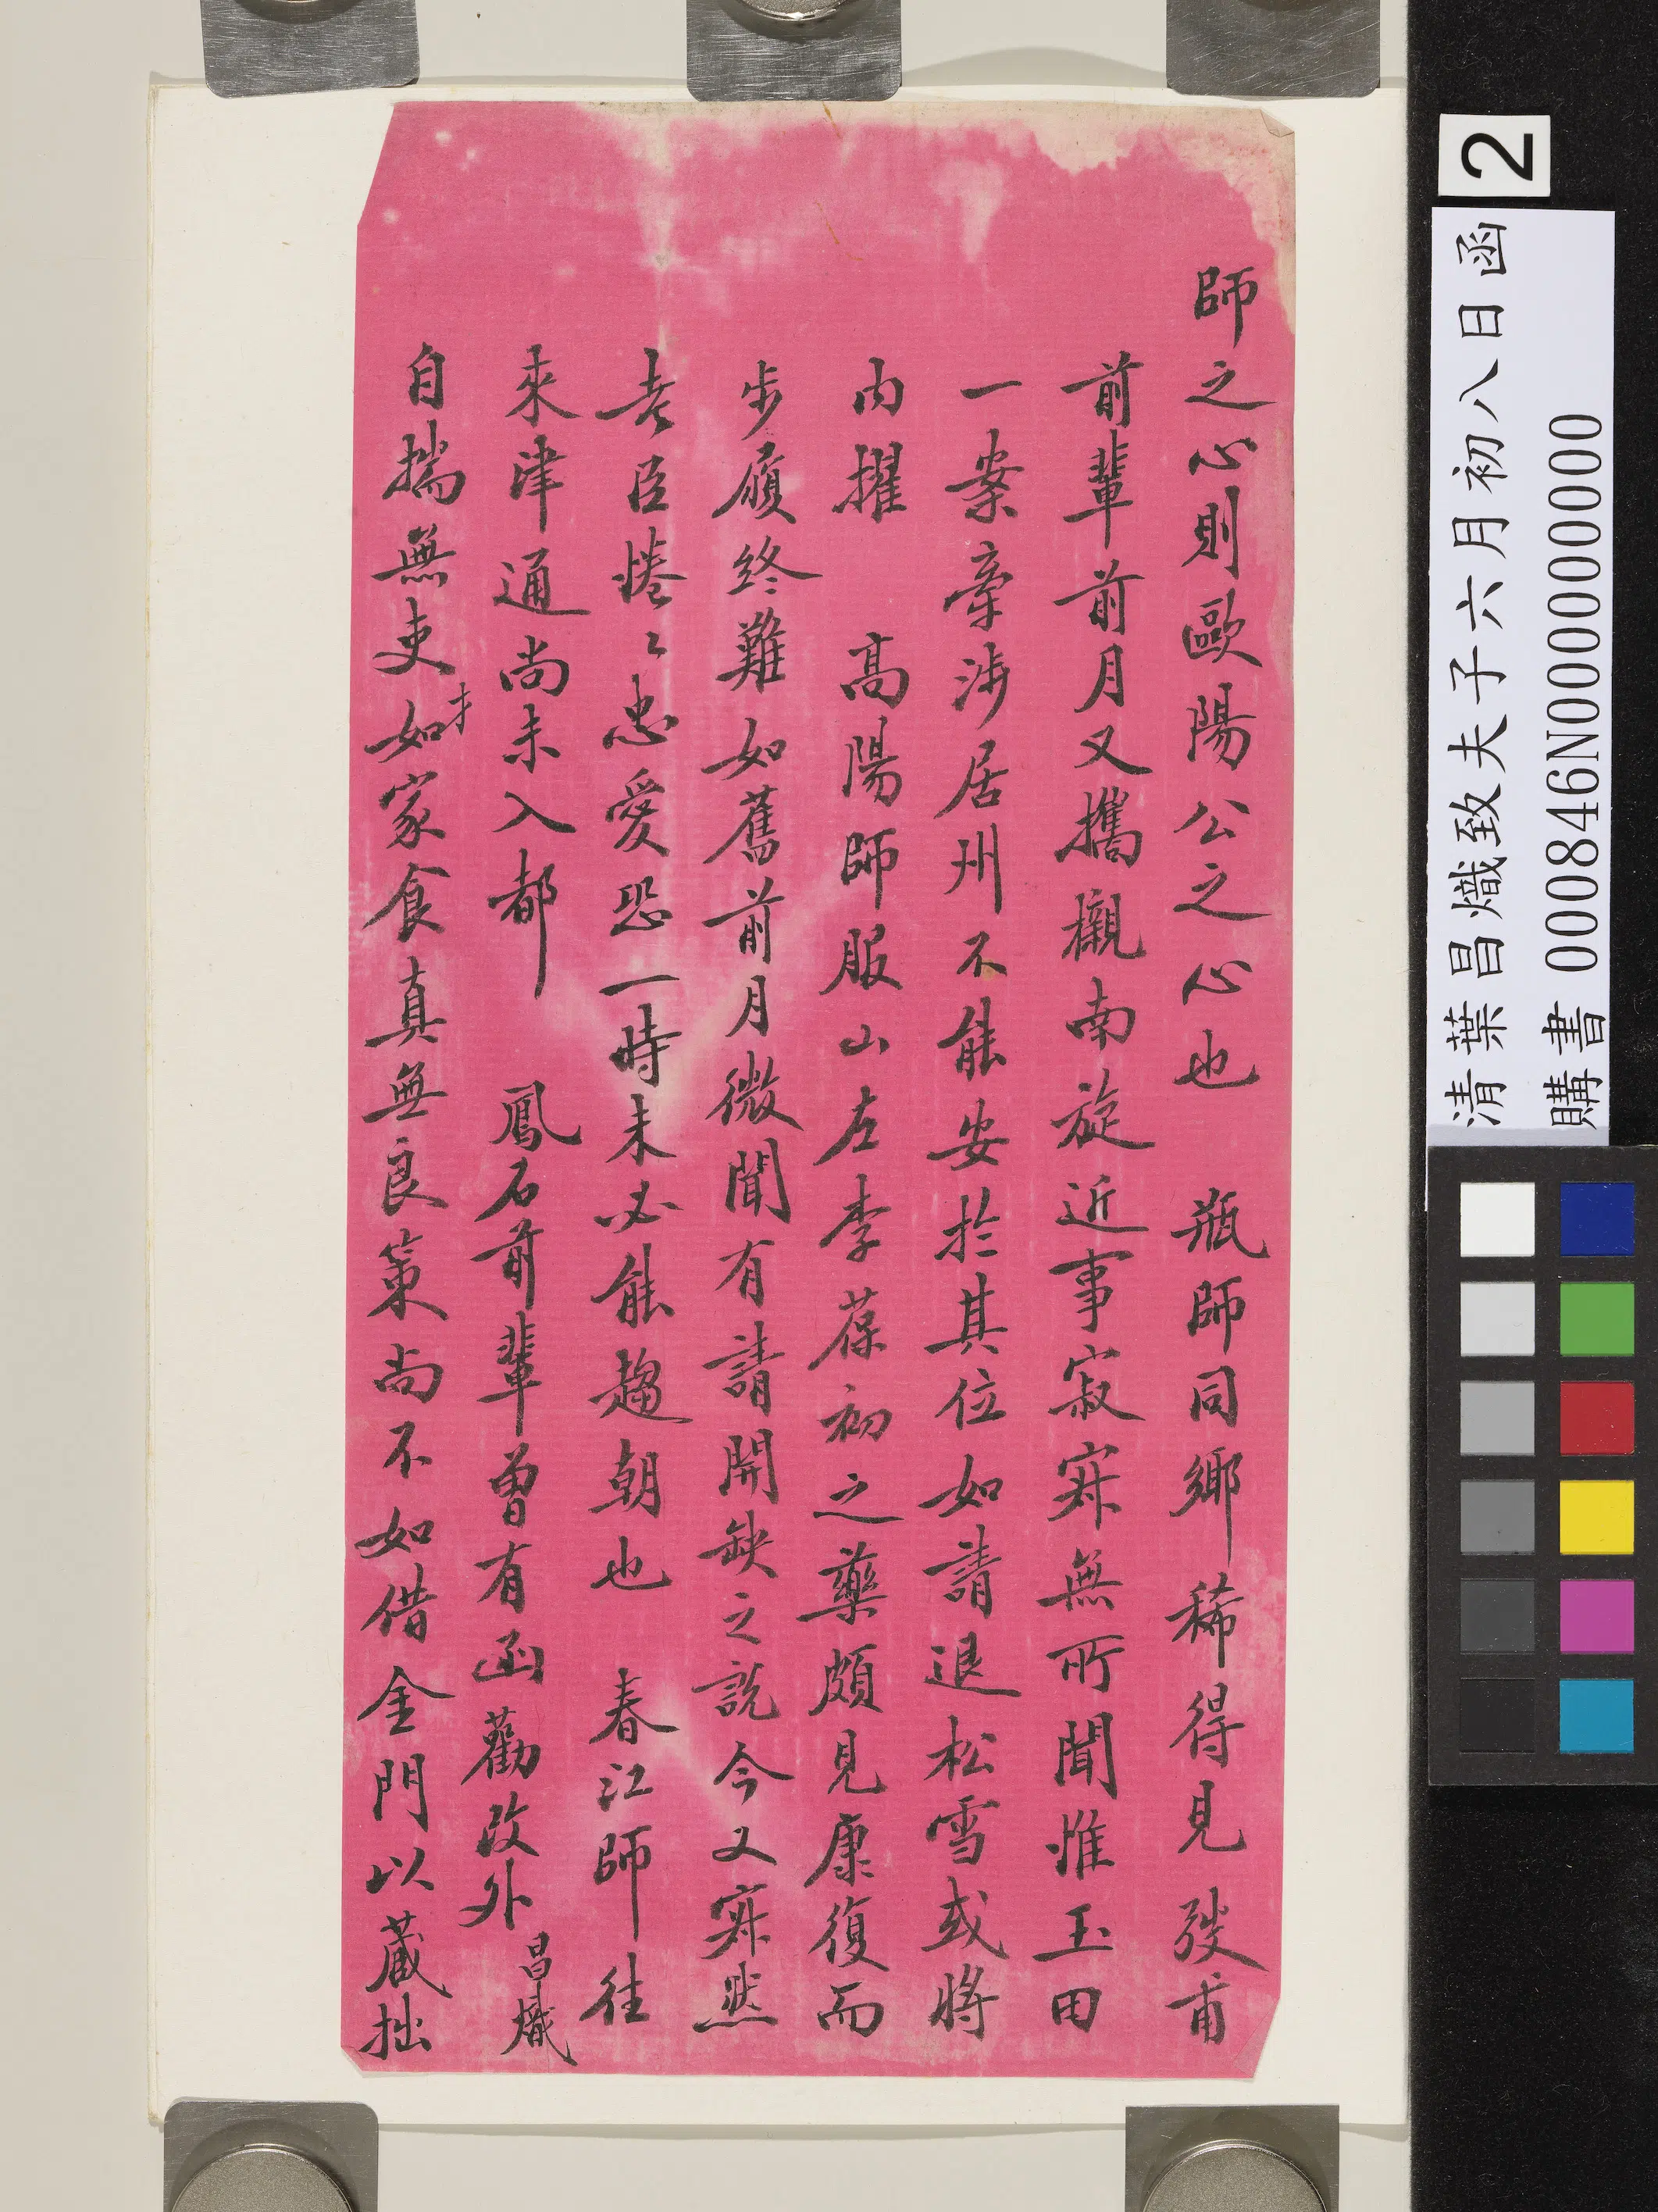 師之心則歐陽公之心也　瓶師同鄉稀得見　弢甫
前輩前月又攜櫬南旋近事寂寞無所聞惟玉田
一案牽涉居州不能安於其位如請退松雪或將
內擢　高陽師服山左李葆初之藥頗見康復而
步履終難如舊前月微聞有請開缺之說今又寂然
老臣惓々忠愛恐一時未必能趨朝也　春江師往
來津通尚未入都　鳳石前輩曾有函勸改外昌熾
自揣無吏才如家食真無良策尚不如借金門以藏拙
2
清葉昌熾致夫子六月初八日函
購書 000846N000000000